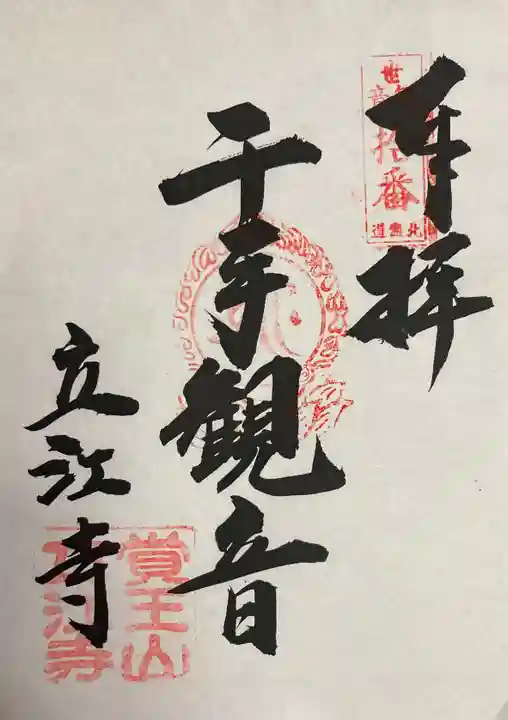 奉拝
千手観音
立江寺
拾番
北海道
覚王山
立江寺